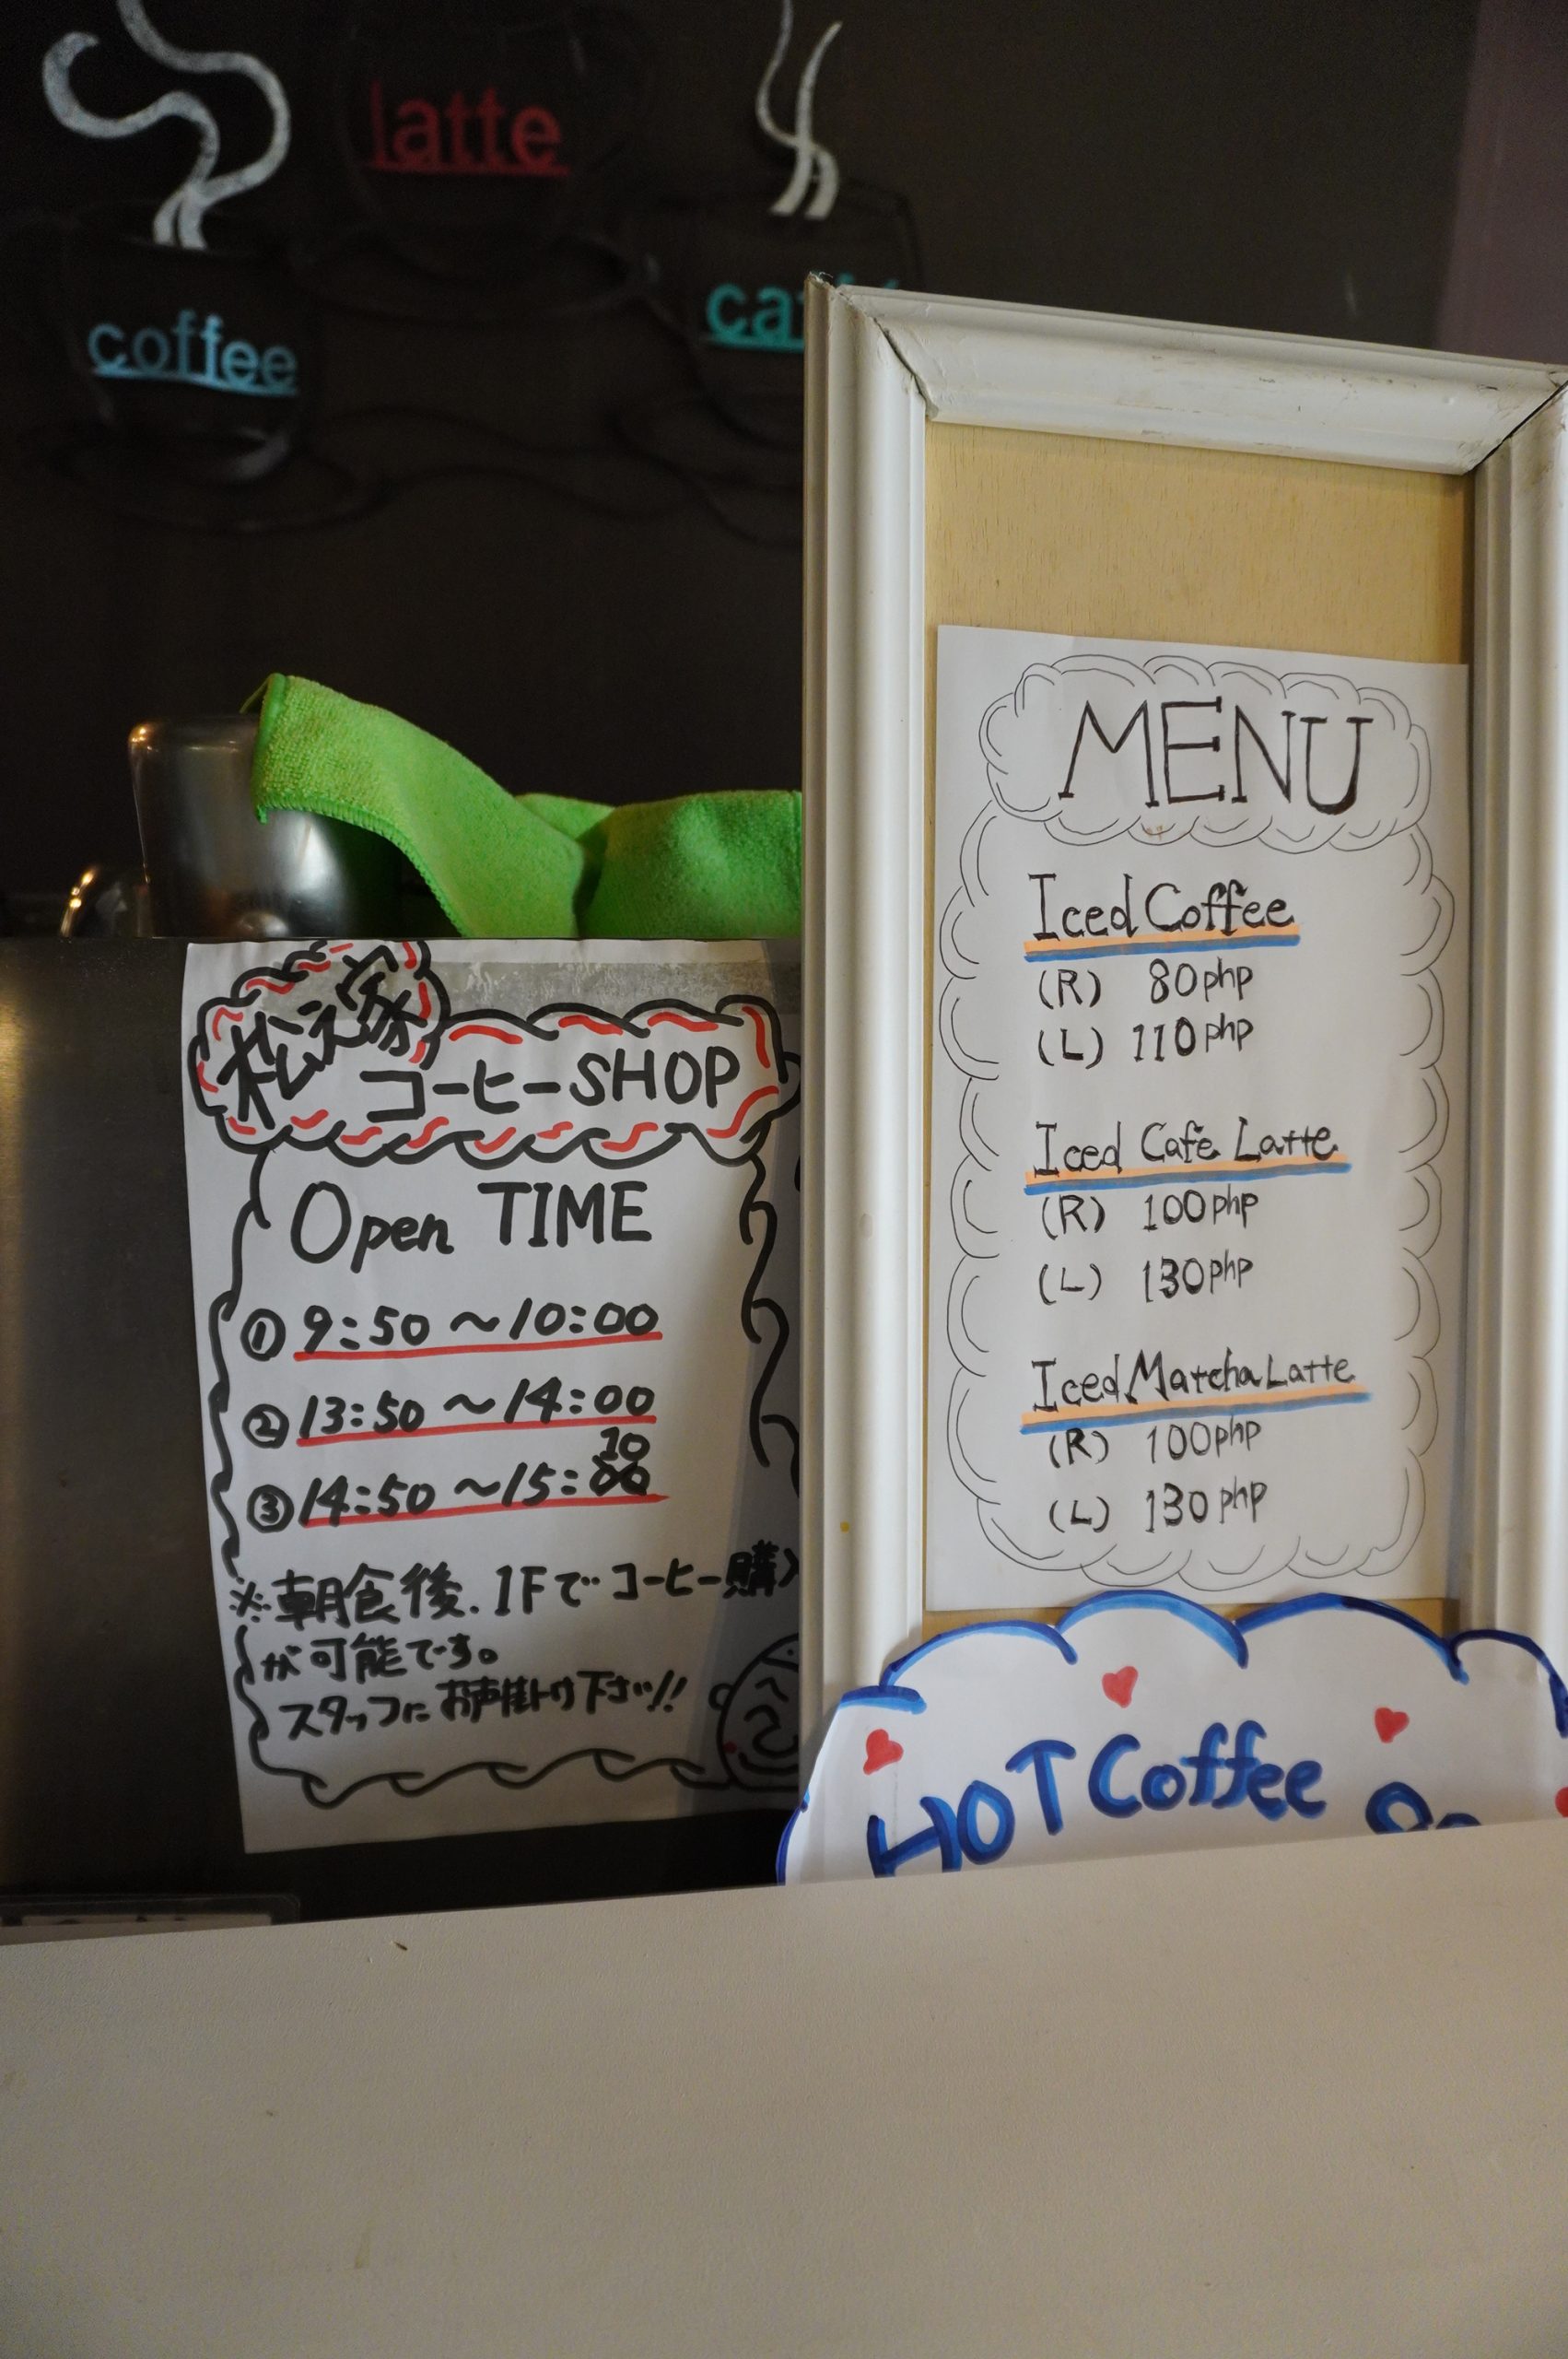 latte
coffee
松之家
コーヒーSHOP
Open TIME
① 9:50 ～10:00
② 13:50 ～14:00
③ 14:50 ～15:10
※朝食後.1Fでコーヒー購
が可能です。
スタッフにお声掛け下さい!!
MENU
Iced Coffee
(R) 80php
(L) 110php
Iced Cafe Latte
(R) 100php
(L) 130php
Iced Matcha Latte
(R) 100php
(L) 130php
HOT Coffee